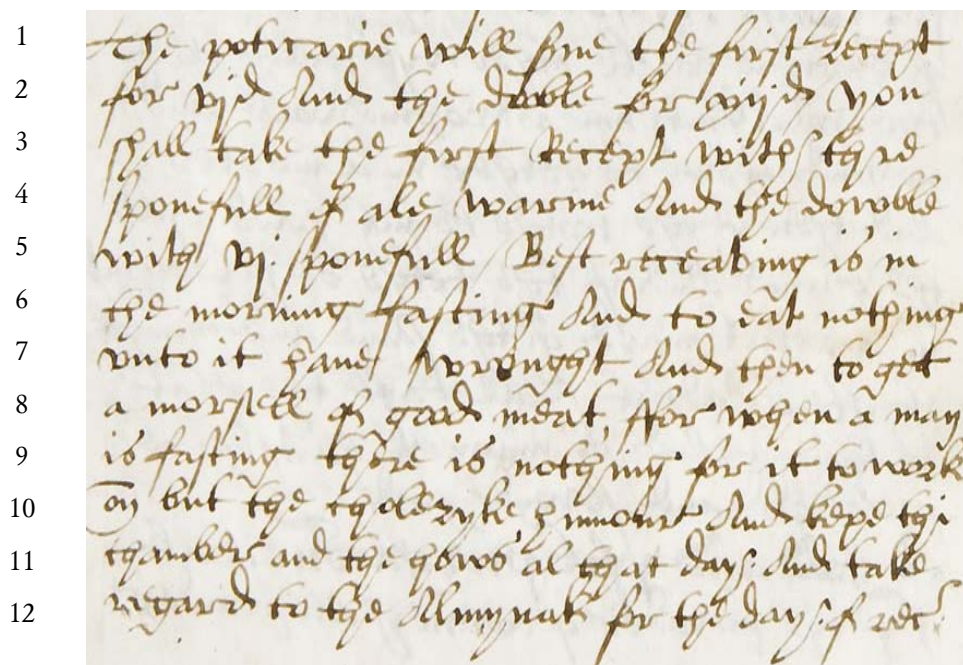 1 The poticarie will sine the first recept
2 for vjd And the dooble for xijd you
3 shall take the first Recept with thre
4 sponefull of ale warme And the dowble
5 with vj. sponefull / Best receabing is in
6 the morning fasting And to eat nothing
7 vnto it have wrought And then to get
8 a morsell of good meat, ffor when a man
9 is fasting there is nothing for it to worke
10 on but the cholezyke humour And kepe thi
11 chamber and the hows al that day. And take
12 regard to the Almynak for the day. of rec.